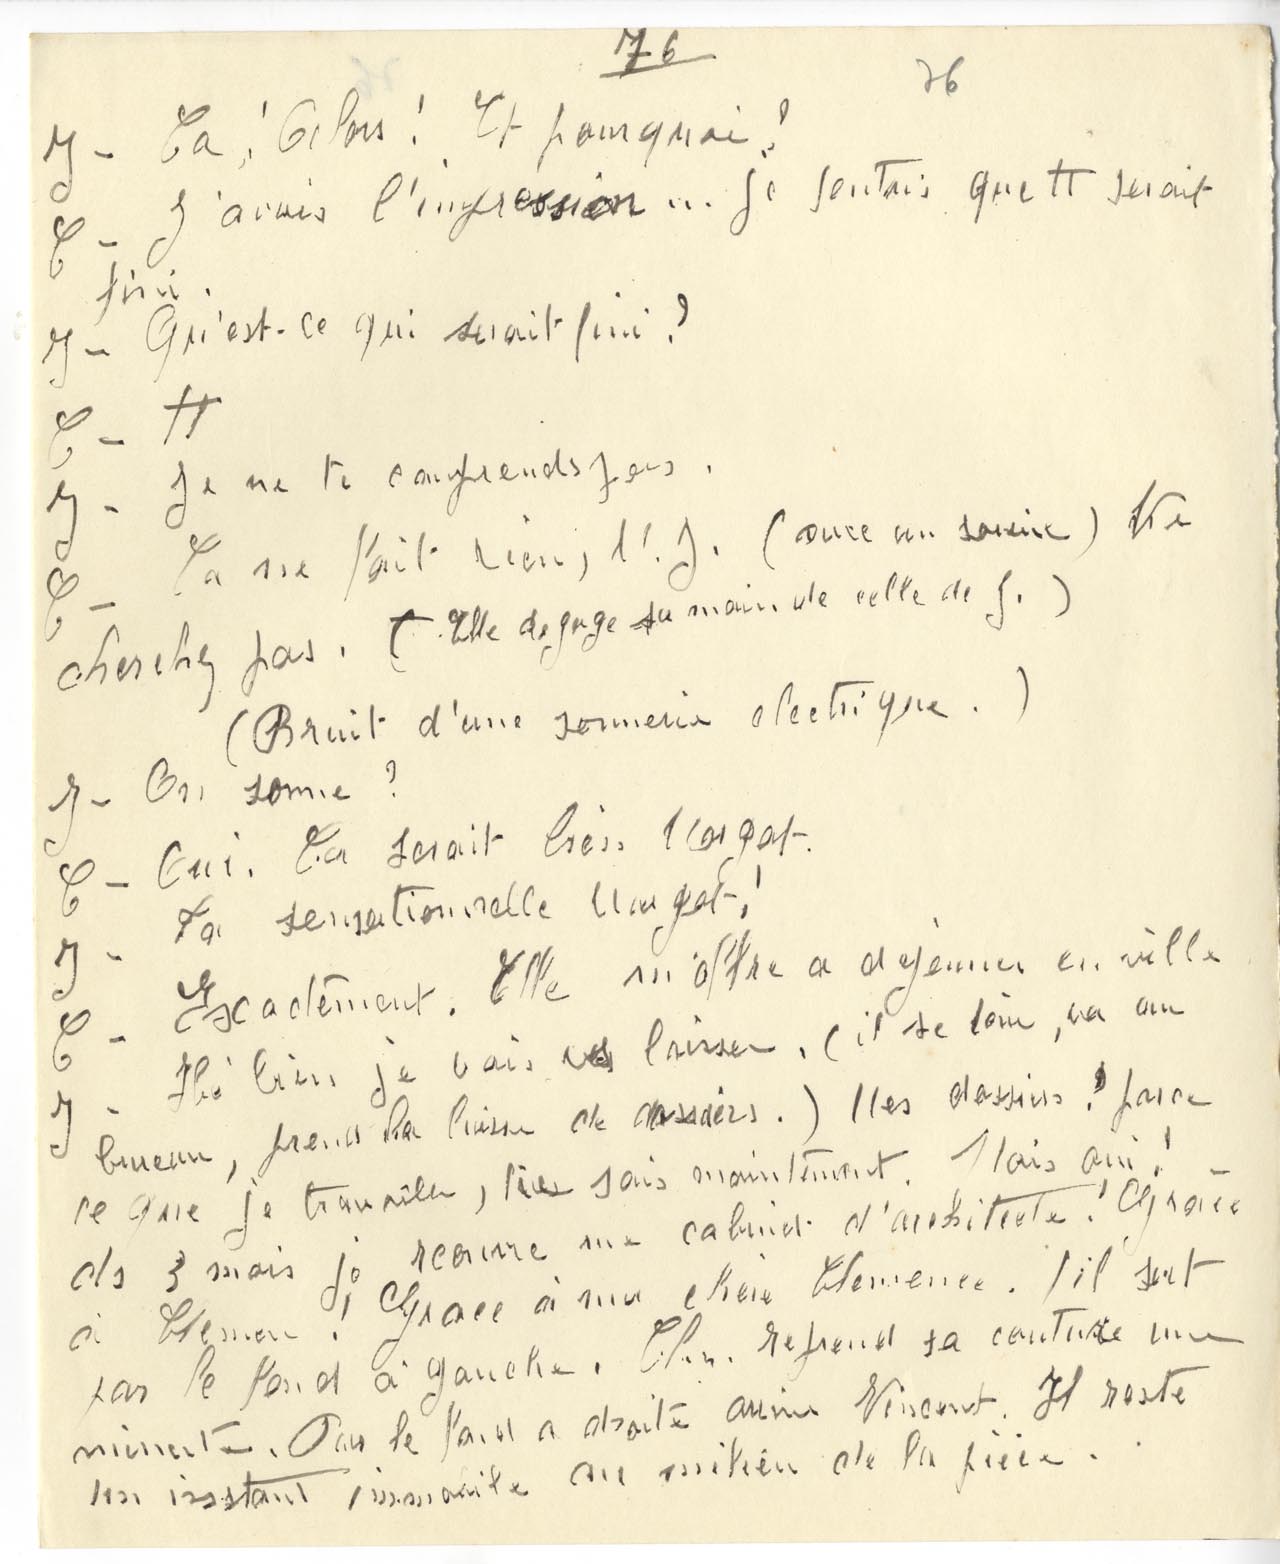 76
76
J - Ça, alors ! Et pourquoi ?
C - J'avais l'impression ... Je sentais que tt serait
fini.
J - Qu'est-ce qui serait fini ?
C - tt
J - Je ne te comprends pas.
C - Ça ne fait rien, J. (avec un sourire) Ne
cherchez pas. (Elle dégage sa main de celle de J.)
(Bruit d'une sonnerie électrique.)
J - On sonne ?
C - Oui. Ça serait bien Margot.
J - La sensationnelle Margot !
C - Exactement. Elle m'offre a dejeuner en ville
J - Hé bien je vais vs laisser. (il se lève, va au
bureau, prend la liasse de dossiers.) Mes dossiers ! parce
ce que je travaille, tu sais maintenant. Mais oui ! -
ds 3 mois je rouvre me cabinet d'architecte ! Grâce
à Clemen ! Grace à ma chère Clemence. (il sort
par le fond à gauche. Clem. reprend sa couture une
minute. Par le fond a droite arrive Vincent. Il reste
un instant immobile au milieu de la pièce.